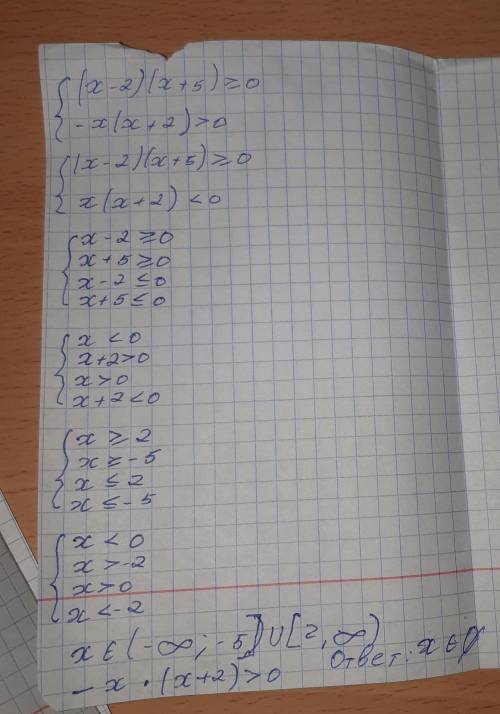 {(x-2)(x+5)≥0
{-x(x+2)>0
{(x-2)(x+5)≥0
{x(x+2)<0
{x-2≥0
{x+5≥0
{x-2≤0
{x+5≤0
{x<0
{x+2>0
{x>0
{x+2<0
{x≥2
{x≥-5
{x≤2
{x≤-5
{x<0
{x>-2
{x>0
{x<-2
x∈(-∞;-5]∪[2,∞)
-x·(x+2)>0
Ответ: x∈∅